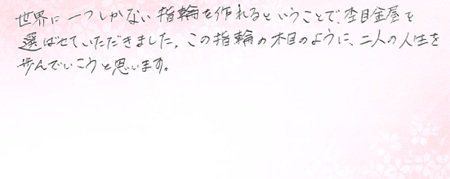 世界に一つしかない指輪を作れるということで、杢目金屋を
選ばせていただきました。この指輪の木目のように、二人の人生を
歩んでいこうと思います。